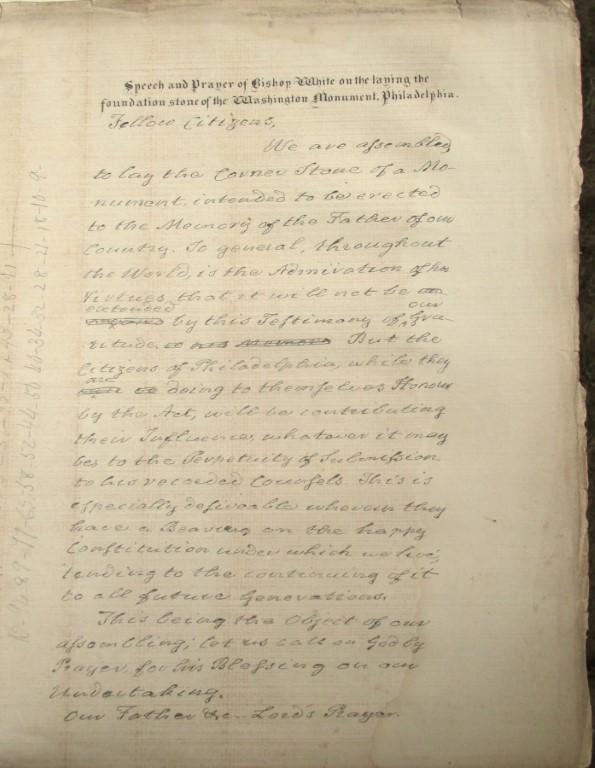 Speech and Prayer of Bishop White on the laying the
foundation stone of the Washington Monument, Philadelphia.
Fellow Citizens,
We are assembled
to lay the Corner Stone of a Mo-
nument, intended to be erected
to the Memory of the Father of our
Country. So general, throughout
the World, is the Admiration of his
Virtues, that it will not be
extended our
by this Testimony of Gra-
titude. But the
Citizens of Philadelphia, while they
are
doing to themselves Honour
by the Act, will be contributing
their Influence, whatever it may
be, to the Perpetuity of Submission
to his recorded Counsels. This is
especially desireable wherein they
have a Bearing on the happy
Constitution under which we live,
tending to the continuing of it
to all future Generations.
This being the Object of our
assembling; let us call on God by
Prayer, for his Blessing on our
Undertaking.
Our Father &c. Lord's Prayer.